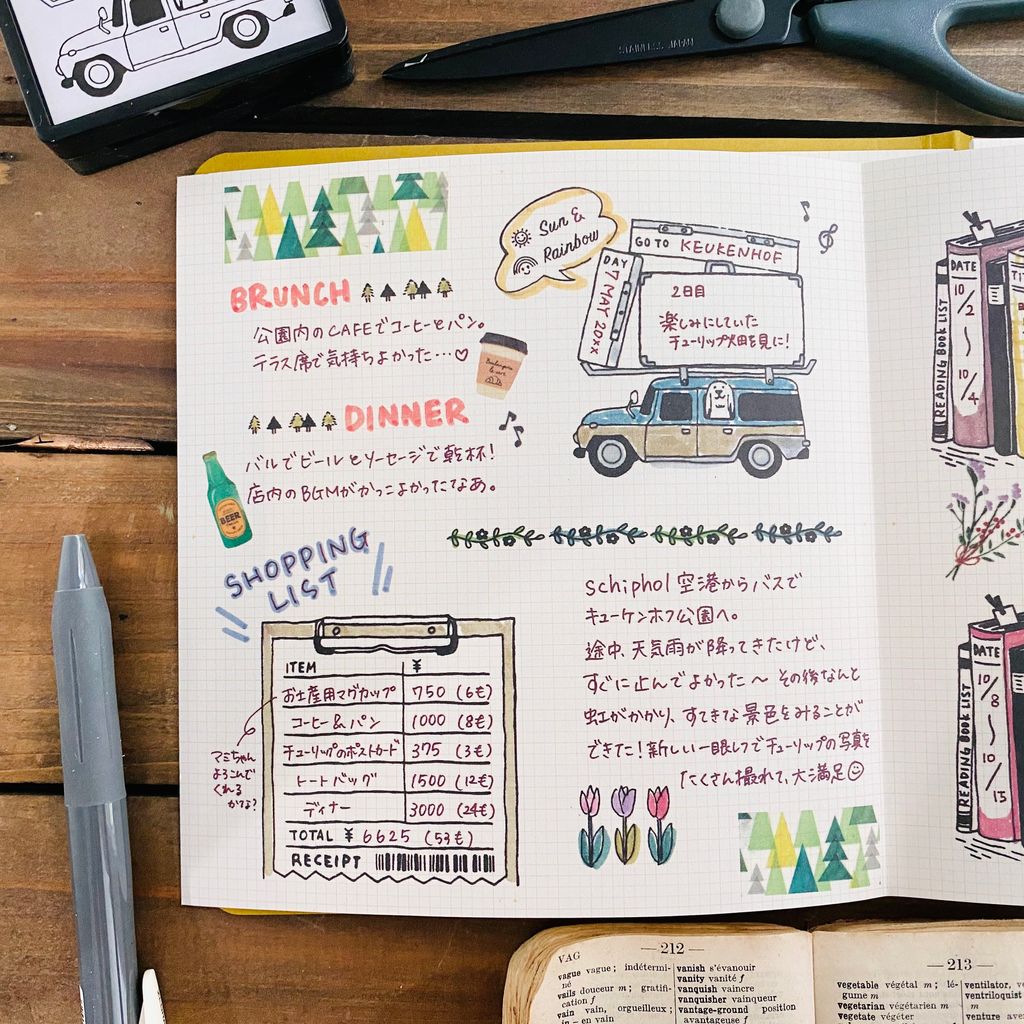 STAINLESS JAPAN
Sun &
Rainbow
GO TO KEUKENHOF
DAY 7 MAY 20XX
2日目
楽しみにしていた
チューリップ畑を見に!
BRUNCH
公園内のCAFEでコーヒーとパン。
テラス席で気持ちよかった…♡
DINNER
バルでビールとソーセージで乾杯!
店内のBGMがかっこよかったなあ。
BEER
SHOPPING
LIST
ITEM ¥
お土産用マグカップ 750 (6€)
コーヒー&パン 1000 (8€)
チューリップのポストカード 375 (3€)
トートバッグ 1500 (12€)
ディナー 3000 (24€)
TOTAL ¥ 6625 (53€)
RECEIPT
マミちゃん
よろこんで
くれる
かな?
schiphol 空港からバスで
キューケンホフ公園へ。
途中、天気雨が降ってきたけど、
すぐに止んでよかった〜 その後なんと
虹がかかり、すてきな景色をみることが
できた!新しい一眼レフでチューリップの写真を
たくさん撮れて、大満足☺
READING BOOK LIST
DATE
10/2
〜
10/4
READING BOOK LIST
DATE
10/8
〜
10/15
VAG
—212—
vague vague; indétermi-
né
vails douceur m; gratifi-
cation f
vain vain, orgueilleux;
in – en vain
vanish s'évanouir
vanity vanité f
vanquish vaincre
vanquisher vainqueur
vantage-ground position
avantageuse f
—213—
vegetable végétal m; lé-
gume m
vegetarian végétarien m
vegetate végéter
ventilator,
ventriloquist
m
venture